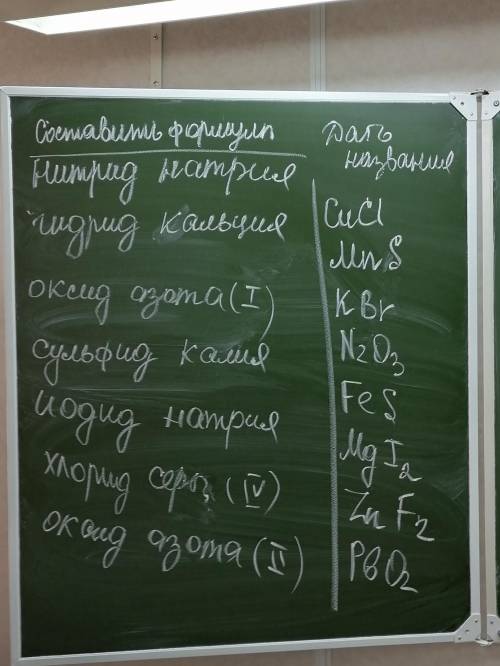 Составить формулы
Нитрид натрия
гидрид кальция
оксид азота (I)
сульфид калия
иодид натрия
хлорид серы (IV)
оксид азота (II)
Дать
названия
CuCl
MnS
KBr
N2O3
FeS
MgI2
ZnF2
PbO2